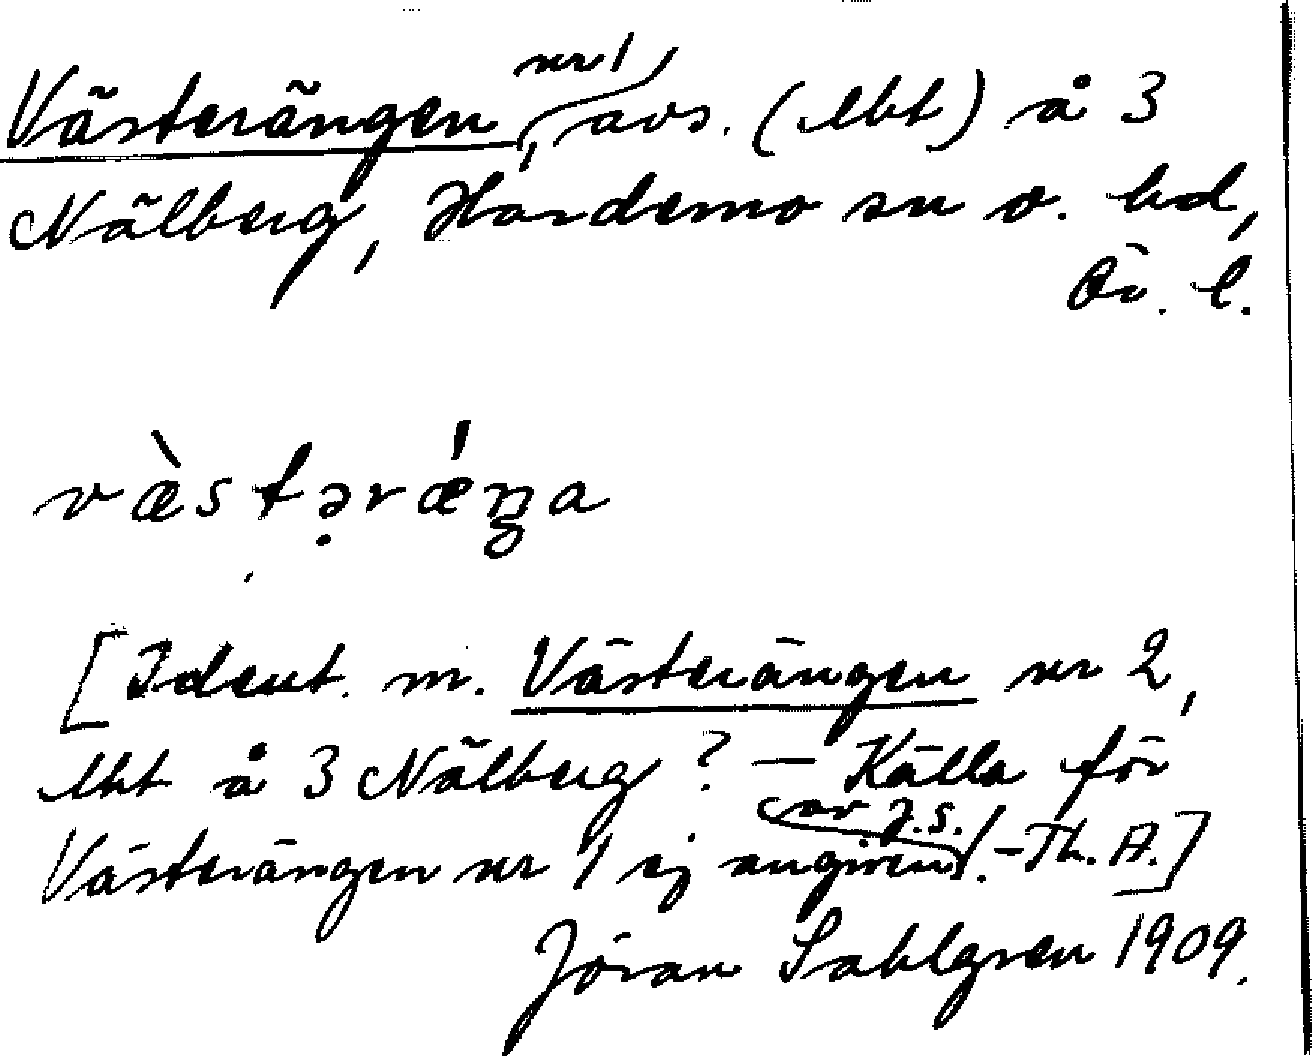 Västerängen nr 1, avs. (lht) å 3
Nälberg, Hardemo sn o. hd,
Ör. l.
væ̀stə̣rǽŋa
[Ident. m. Västerängen nr 2,
lht å 3 Nälberg? — Källa för
Västerängen nr 1 ej angiven av J.S. – Th. A.]
Jöran Sahlgren 1909.